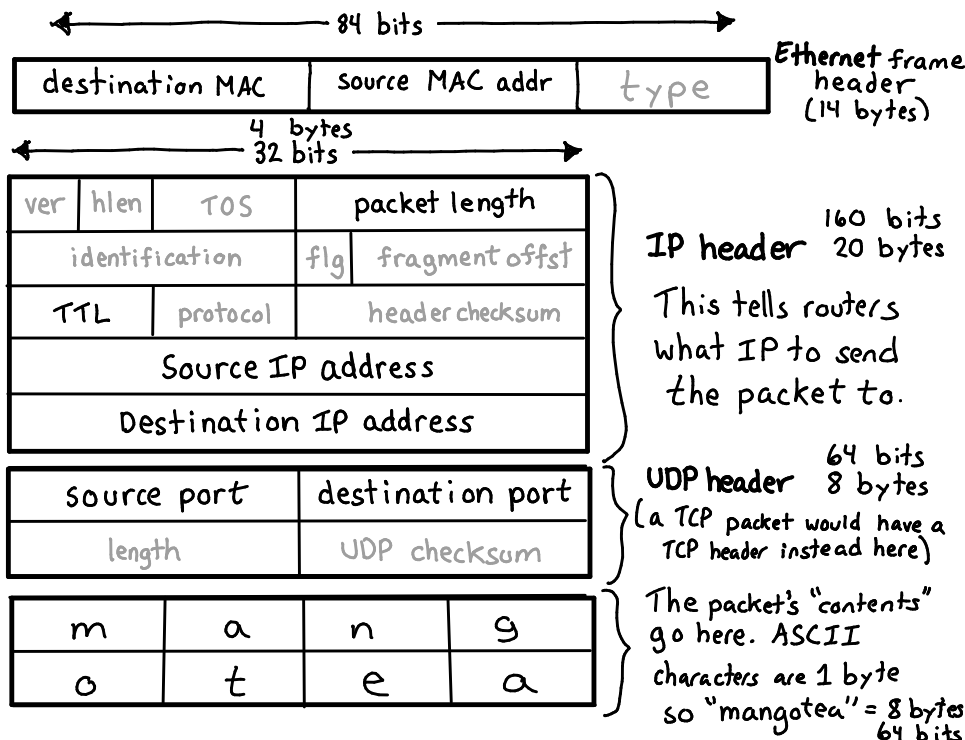 84 bits
destination MAC source MAC addr type
Ethernet frame
header
(14 bytes)
4 bytes
32 bits
ver hlen TOS packet length
identification flg fragment offst
TTL protocol header checksum
Source IP address
Destination IP address
160 bits
IP header 20 bytes
This tells routers
what IP to send
the packet to.
source port destination port
length UDP checksum
64 bits
UDP header 8 bytes
(a TCP packet would have a
TCP header instead here)
m a n g
o t e a
The packet's "contents"
go here. ASCII
characters are 1 byte
so "mangotea" = 8 bytes
64 bits